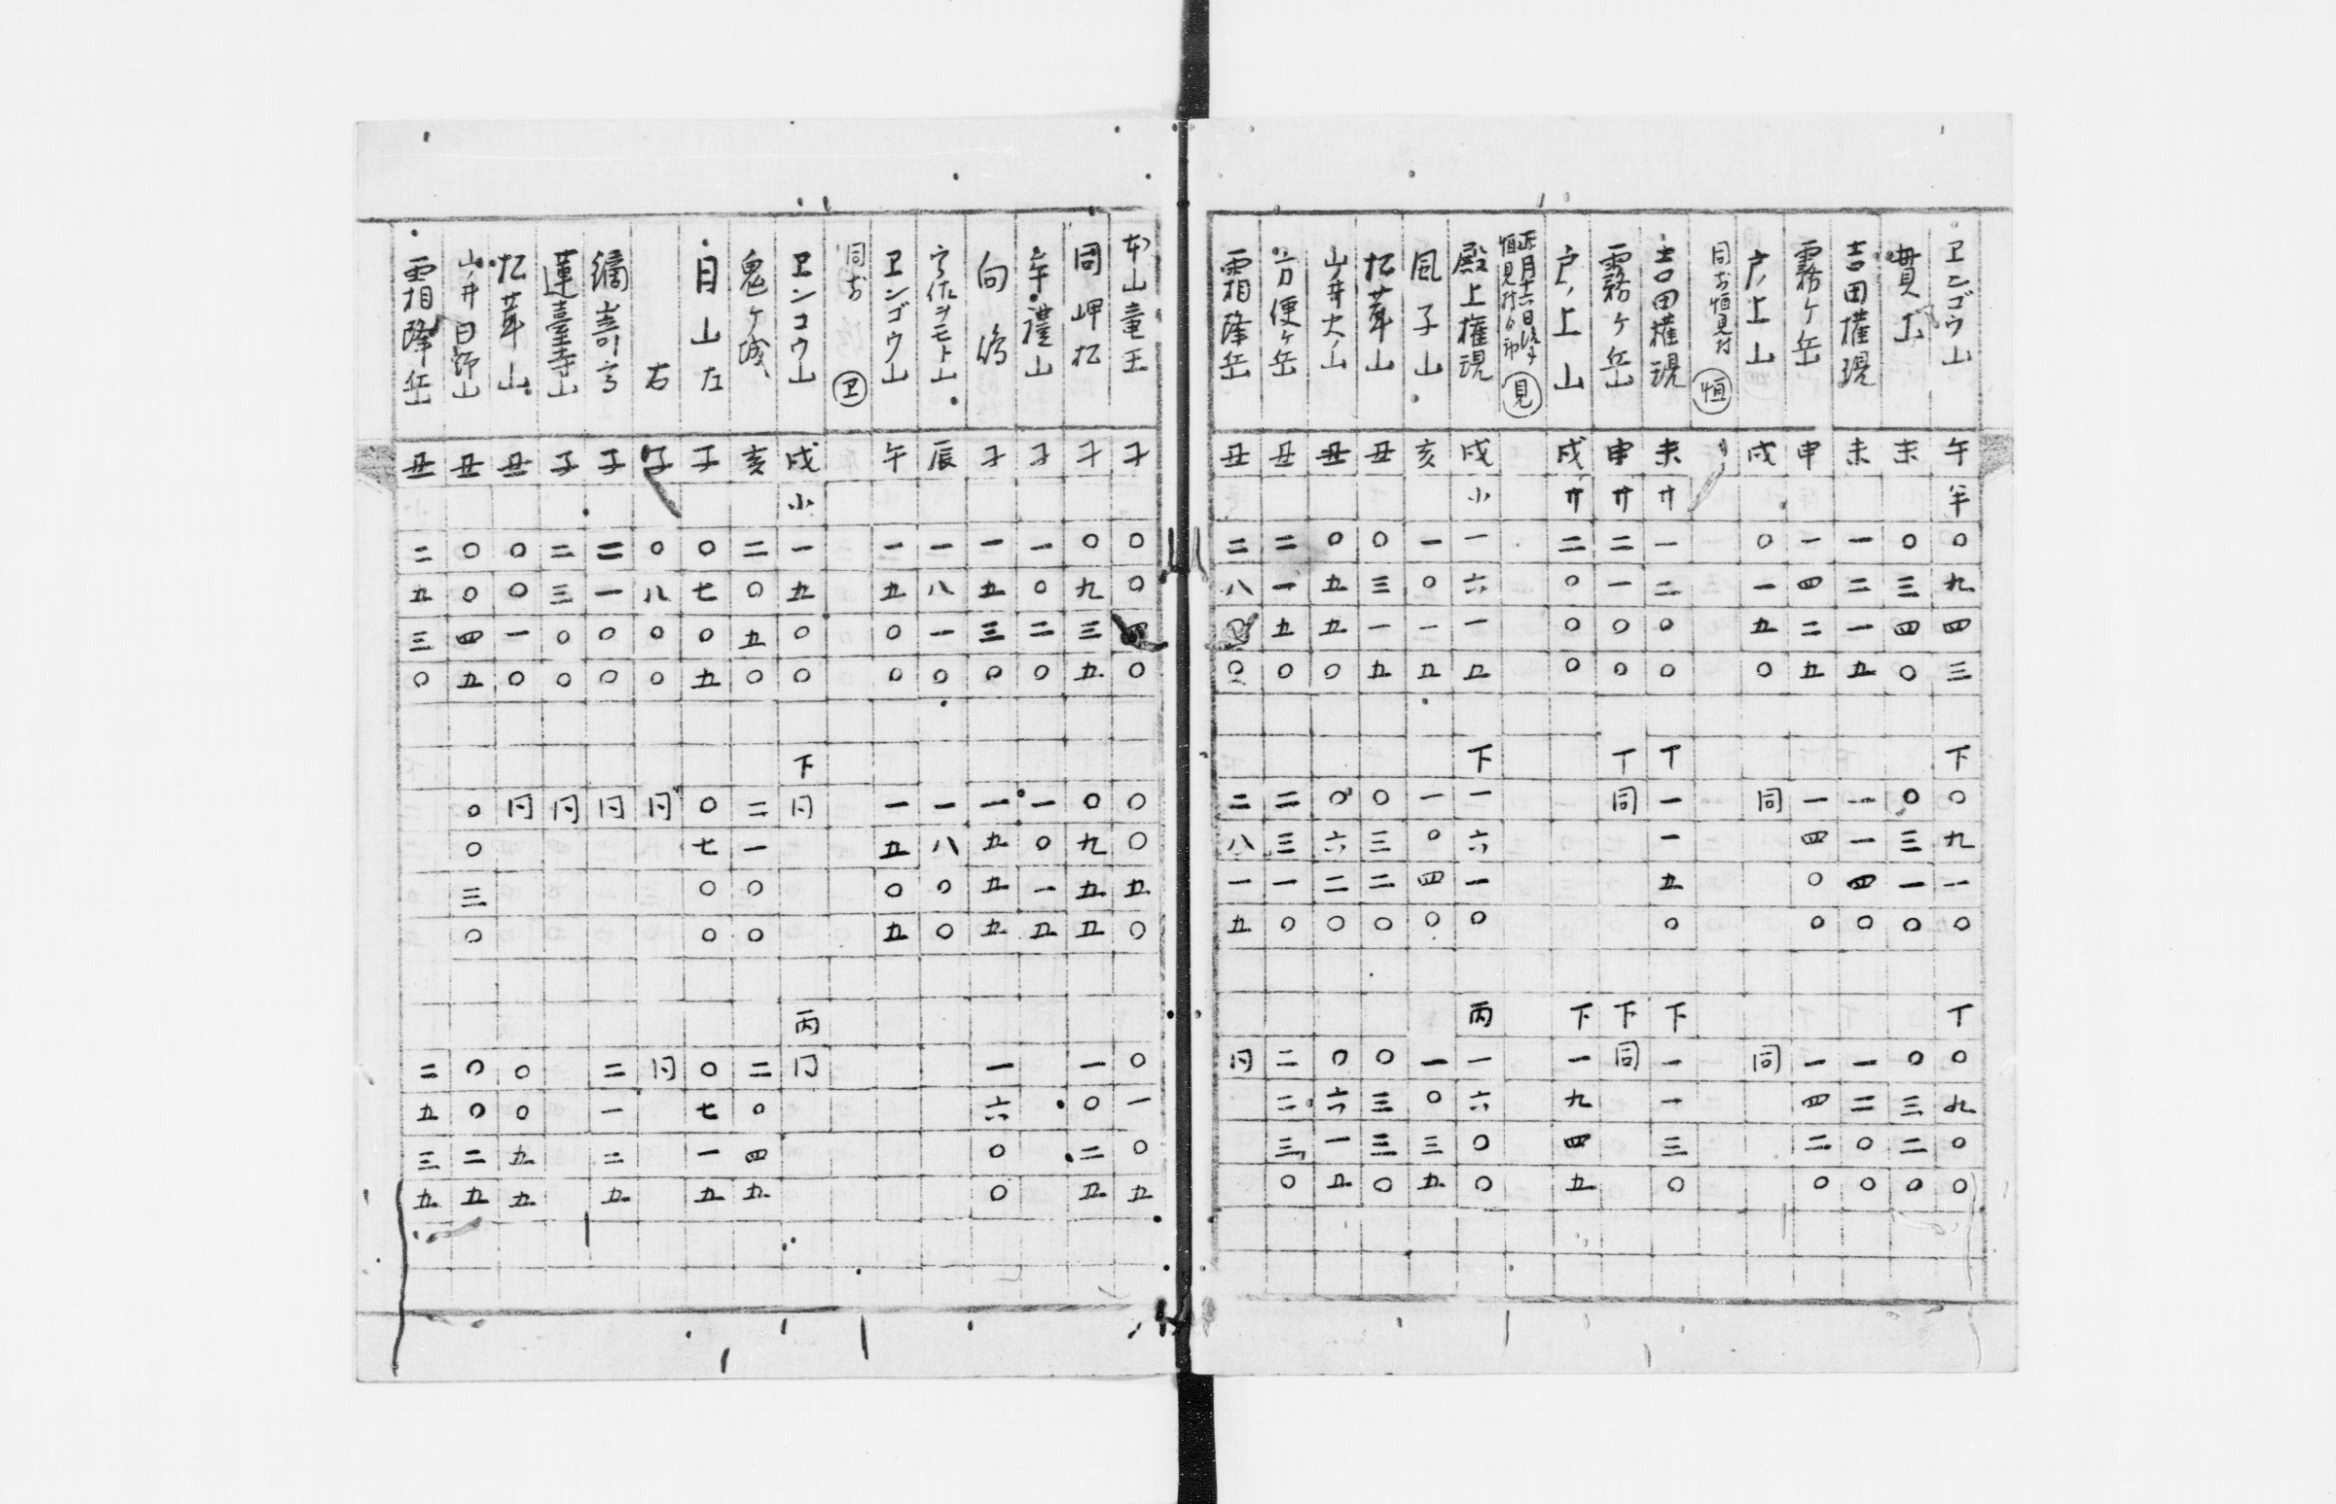 ヱンゴウ山 午 半 〇九四三 下 〇九一〇 丁 〇九〇〇
貫山 未 〇三四〇 〇三一〇 〇三二〇
吉田権現 未 一二一五 一一四〇 一二〇〇
霧ケ岳 申 一四二五 一四〇〇 一四二〇
戸ノ上山 戌 〇一五〇 同 同
同所恒見村 恒
吉田権現 未 廾 一二〇〇 丁 一一五〇 下 一一三〇
霧ケ岳 申 廾 二一〇〇 丁 同 下 同
戸ノ上山 戌 廾 二〇〇〇 下 一九四五
正月十六日
恒見村 見
殿上権現 戌 小 一六一五 下 一六一〇 丙 一六〇〇
風子山 亥 一〇一五 一〇四〇 一〇三五
松茸山 丑 〇三一五 〇三二〇 〇三三〇
山ノ井大ノ山 丑 〇五五〇 〇六二〇 〇六一五
方便ヶ岳 丑 二一五〇 二三一〇 二二三〇
霜降岳 丑 二八四〇 二八一五 同
本山竜王 子 〇〇四〇 〇〇五〇 〇一〇五
同岬松 子 〇九三五 〇九五五 一〇二五
牟禮山 子 一〇二〇 一〇一五
向嶋 子 一五三〇 一五五五 一六〇〇
宇佐ヲモト山 辰 一八一〇 一八〇〇
ヱンゴウ山 午 一五〇〇 一五〇五
同所 ヱ
ヱンコウ山 戌 小 一五〇〇 下 同 丙 同
鬼ケ城 亥 二〇五〇 二一〇〇 二〇四五
目山左 子 〇七〇五 〇七〇〇 〇七一五
右 子 〇八〇〇 同 同
子 二一〇〇 同 二一二五
蓮臺寺山 子 二三〇〇 同
松茸山 丑 〇〇一〇 同 〇〇五五
山ノ井日野山 丑 〇〇四五 〇〇三〇 〇〇二五
霜降岳 丑 二五三〇 二五三五